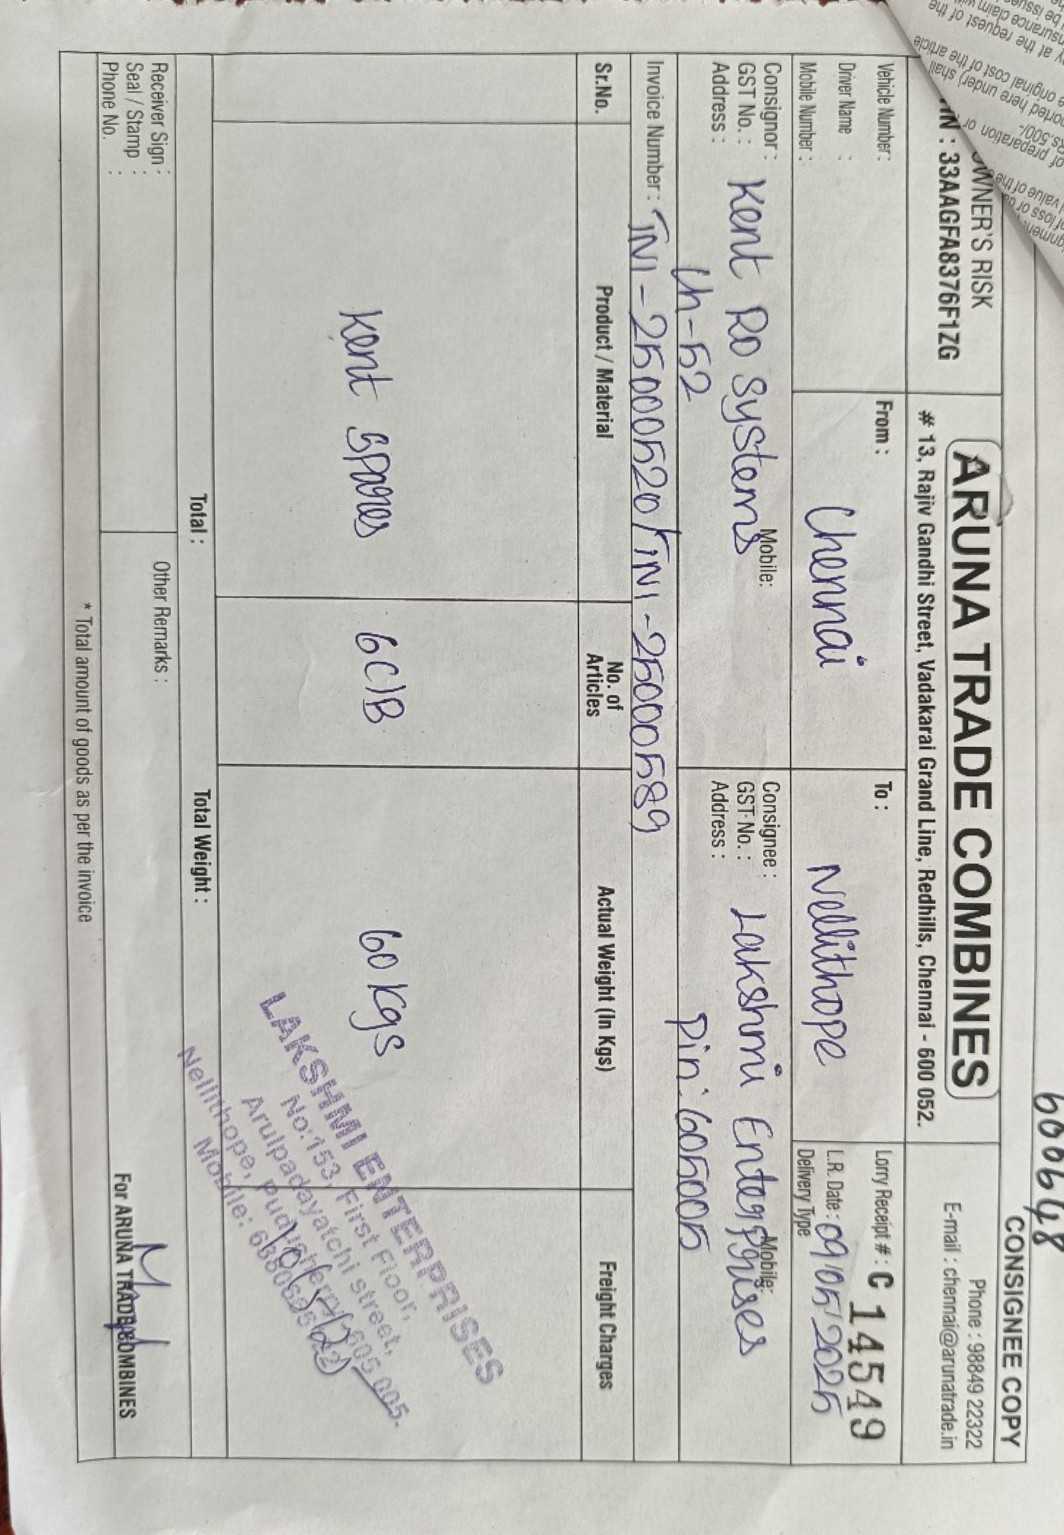 60648
CONSIGNEE COPY
OWNER'S RISK
ARUNA TRADE COMBINES
Phone : 98849 22322
E-mail : chennai@arunatrade.in
IN : 33AAGFA8376F1ZG
# 13, Rajiv Gandhi Street, Vadakarai Grand Line, Redhills, Chennai - 600 052.
Vehicle Number :
Driver Name :
Mobile Number :
From :
Chennai
To :
Nellithope
Lorry Receipt # : C 14549
L.R. Date : 09/05/2025
Delivery Type
Consignor : Kent Ro Systems
GST No. :
Mobile:
Address :
Ch-52
Consignee : Lakshmi Enterprises
GST No. :
Mobile:
Address :
Pin: 605005
Invoice Number : TN1-25000520/TN1-25000589
Sr.No. Product / Material No. of Articles Actual Weight (In Kgs) Freight Charges
Kent Spares 6C)B 60 Kgs
LAKSHMI ENTERPRISES
No:153, First Floor,
Arulpadayatchi street,
Nellithope, Puducherry 605 005.
Mobile:
Total : Total Weight :
Receiver Sign :
Seal / Stamp :
Phone No. :
Other Remarks :
For ARUNA TRADE COMBINES
* Total amount of goods as per the invoice
at the request of the
original cost of the article
here under) shall
of preparation or
value of the